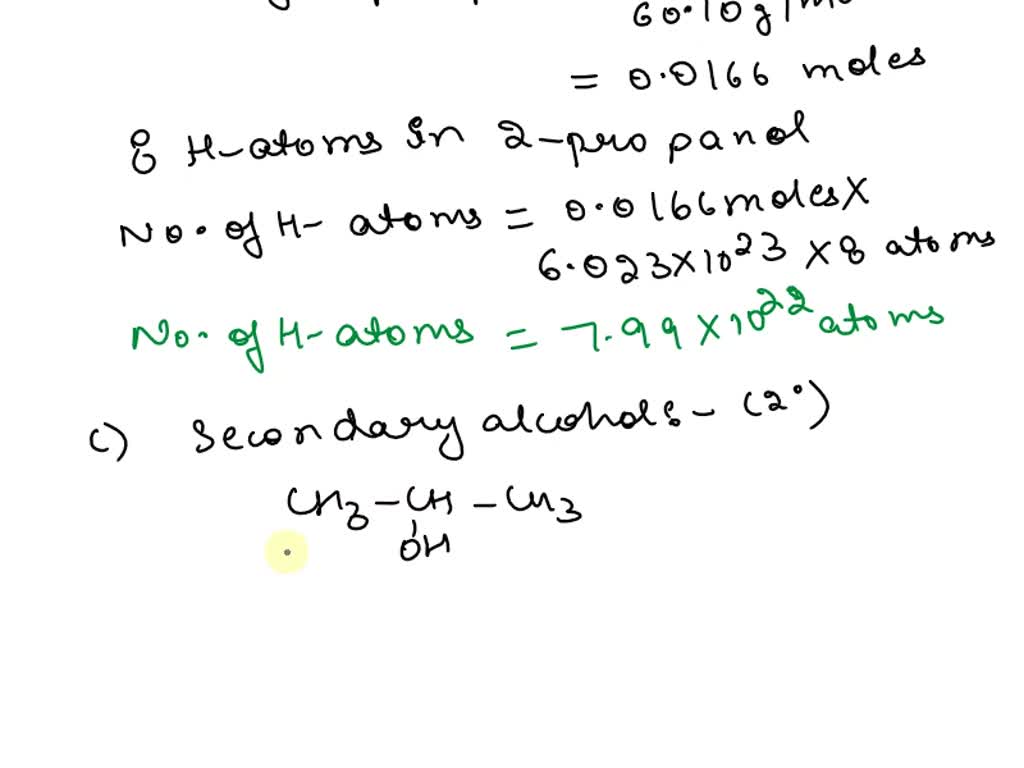 60.10 g/mo
= 0.0166 moles
8 H-atoms in 2-propanol
No. of H- atoms = 0.0166 moles X
6.023X10²³ X 8 atoms
No. of H- atoms = 7.99 X 10²² atoms
c) Secondary alcohols - (2°)
CH3 - CH - CH3
OH